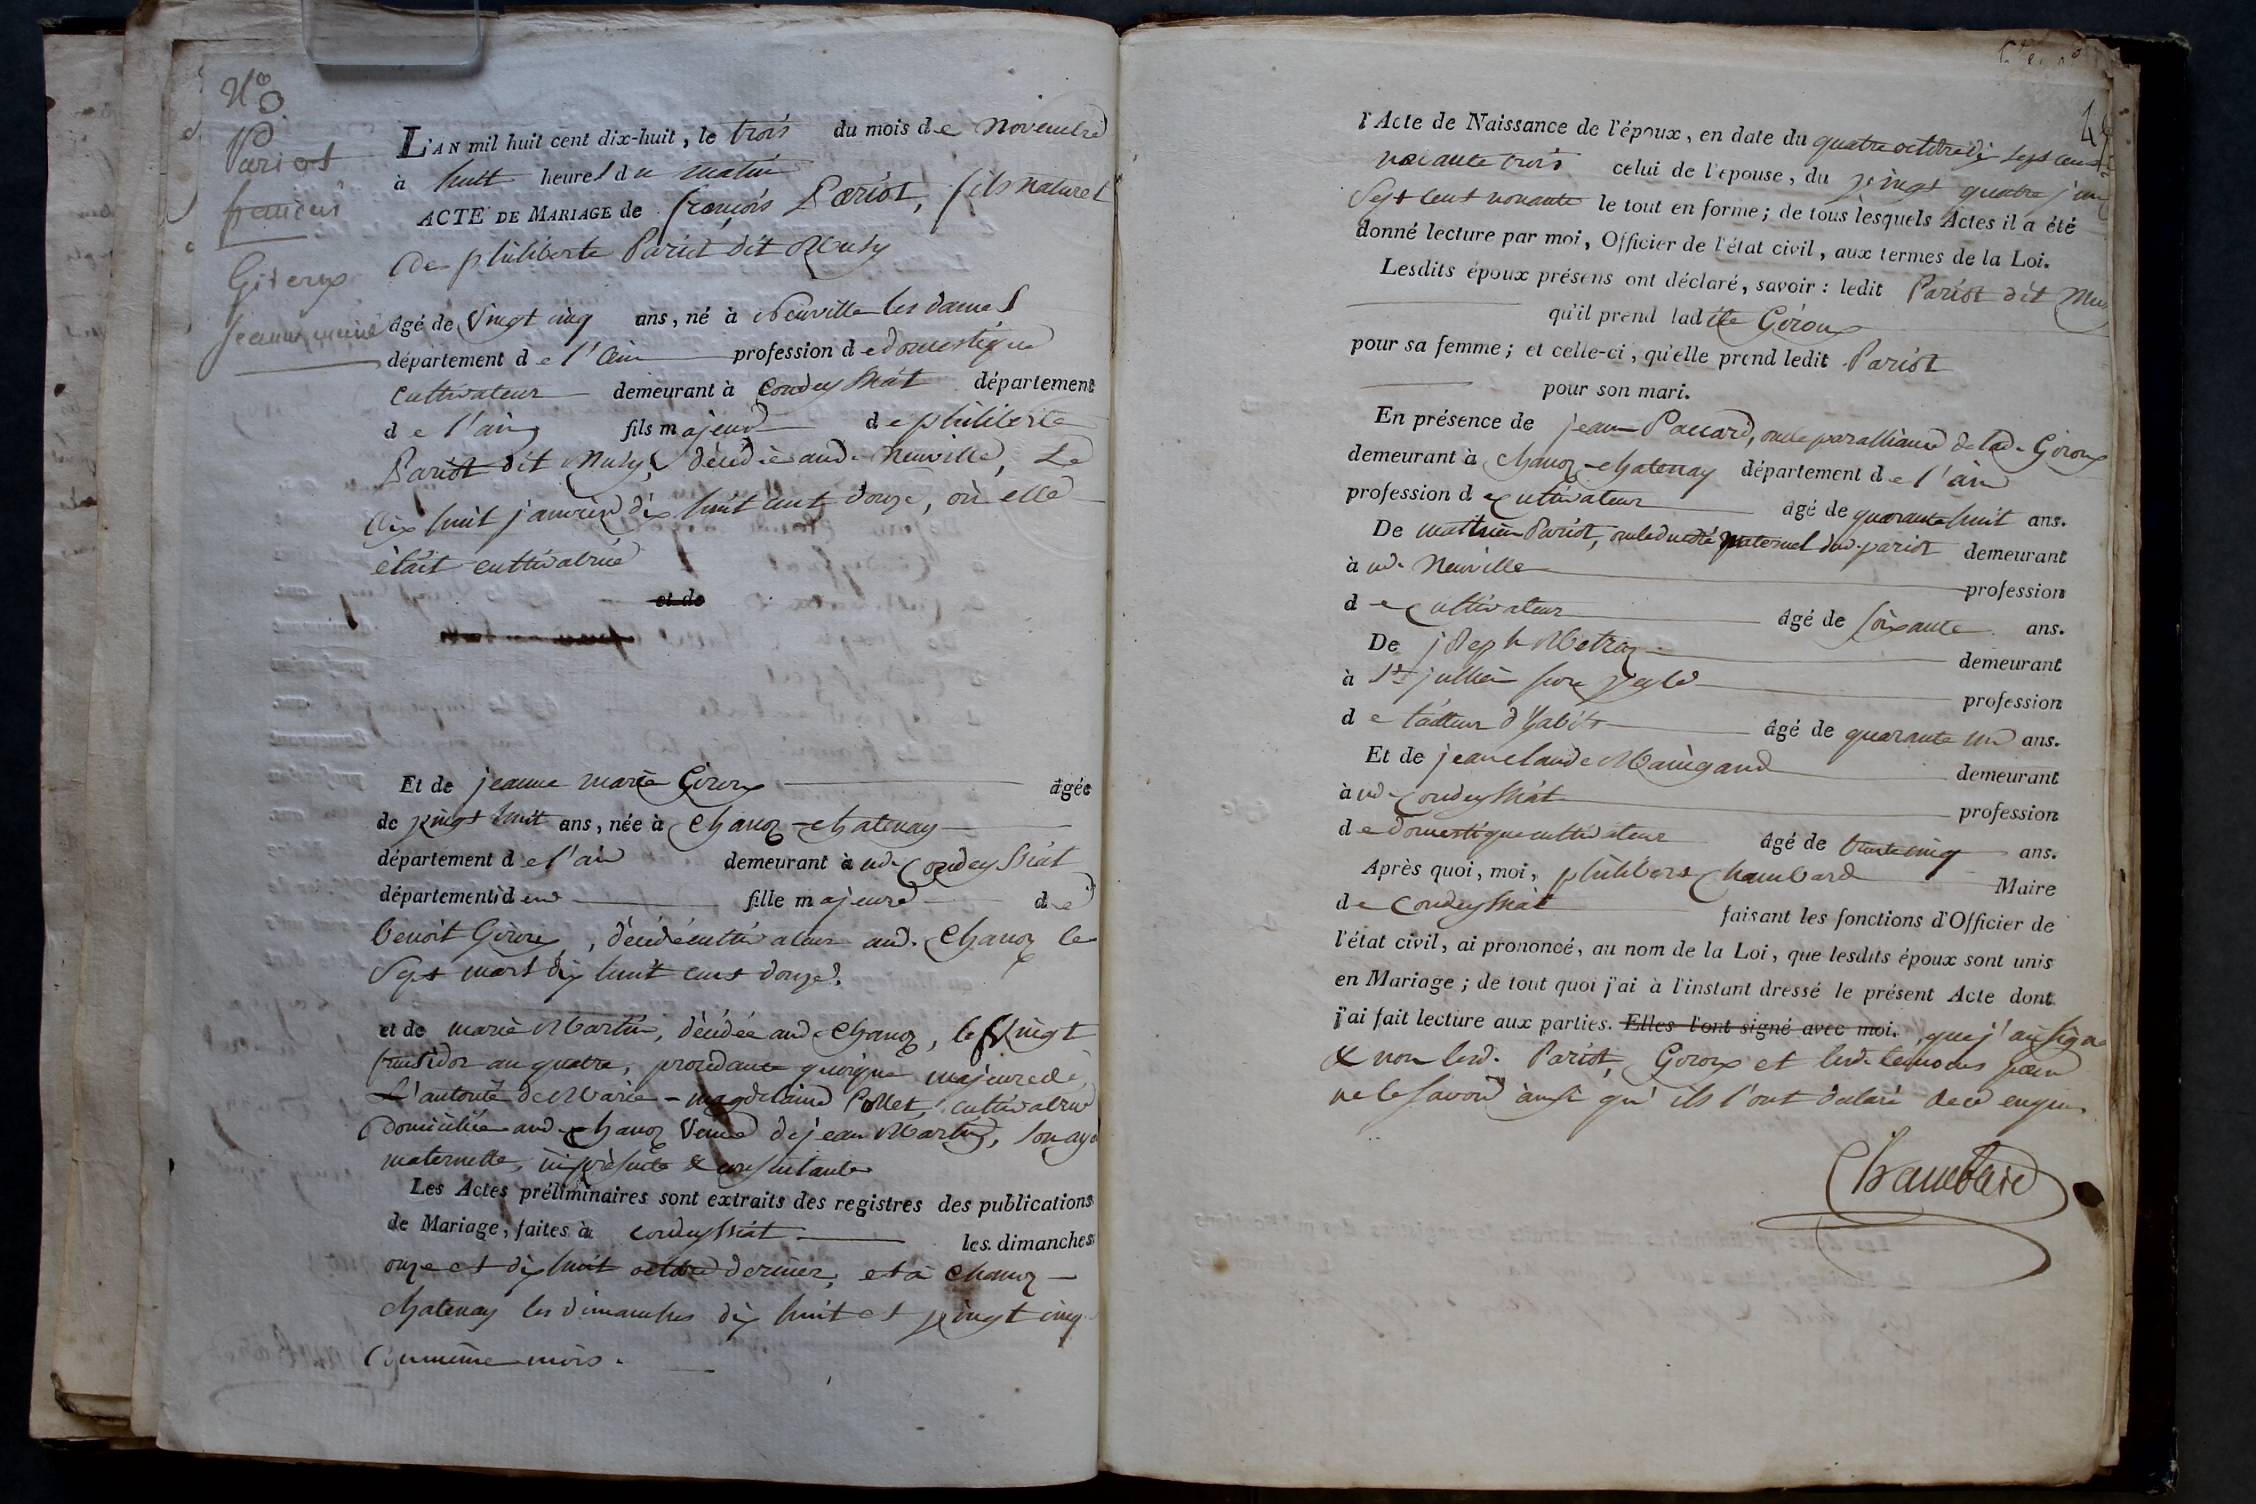 L'AN mil huit cent dix-huit, le trois du mois de Novembre
à huit heures du matin
ACTE DE MARIAGE de françois Pariot, fils naturel
de philiberte Pariot dit Musy
âgé de vingt cinq ans, né à Neuville les dames
département de l'ain profession de domestique
cultivateur demeurant à Condeyssiat département
de l'ain fils majeur de philiberte
Pariot dit Musy, décédée aud. Neuville, Le
dix huit janvier dix huit cent douze, où elle
était cultivatrice
et de
Et de jeanne marie Giroux âgée
de vingt huit ans, née à Chanoz-chatenay
département de l'ain demeurant à ud. Condeyssiat
département id em fille majeure de
benoit Giroux, décédé cultivateur aud. Chanoz le
Sept mars dix huit cent douze.
et de marie Martin, décédée aud. Chanoz, le vingt
fructidor an quatre, procédante quoique majeure de
L'autorité de Marie-magdelaine Pollet, cultivatrice
domiciliée aud. Chanoz veuve de jean Martin, son ayeule
maternelle, ici présente & consentante
Les Actes préliminaires sont extraits des registres des publications
de Mariage, faites à Condeyssiat les dimanches
onze et dix huit octobre dernier, et à Chanoz-
chatenay les dimanches dix huit et vingt cinq
du même mois.
N.º
Pariot
françois
Giroux
jeanne marie
l'Acte de Naissance de l'époux, en date du quatre octobre dix sept cent
nonante trois celui de l'épouse, du vingt quatre janv
sept cent nonante le tout en forme; de tous lesquels Actes il a été
donné lecture par moi, Officier de l'état civil, aux termes de la Loi.
Lesdits époux présens ont déclaré, savoir: ledit Pariot dit Mus
qu'il prend ladite Giroux
pour sa femme; et celle-ci, qu'elle prend ledit Pariot
pour son mari.
En présence de jean Paccard, oncle par alliance de lad. Giroux
demeurant à Chanoz-chatenay département de l'ain
profession de cultivateur âgé de quarante huit ans.
De mathieu Pariot, oncle du coté maternel dud. pariot demeurant
à ud. Neuville profession
de cultivateur âgé de soixante ans.
De joseph Metraz demeurant
à St. jullien sur veyle profession
de tailleur d'habits âgé de quarante un ans.
Et de jean claude Mainigand demeurant
à ud. Condeyssiat profession
de domestique cultivateur âgé de trente cinq ans.
Après quoi, moi, philibert Chambard Maire
de Condeyssiat faisant les fonctions d'Officier de
l'état civil, ai prononcé, au nom de la Loi, que lesdits époux sont unis
en Mariage; de tout quoi j'ai à l'instant dressé le présent Acte dont
j'ai fait lecture aux parties. Elles l'ont signé avec moi. que j'ai signé
& non lesd. Pariot, Giroux et lesd. temoins pour
ne le savoir ainsi qu'ils l'ont déclaré de ce enquis
Chambard